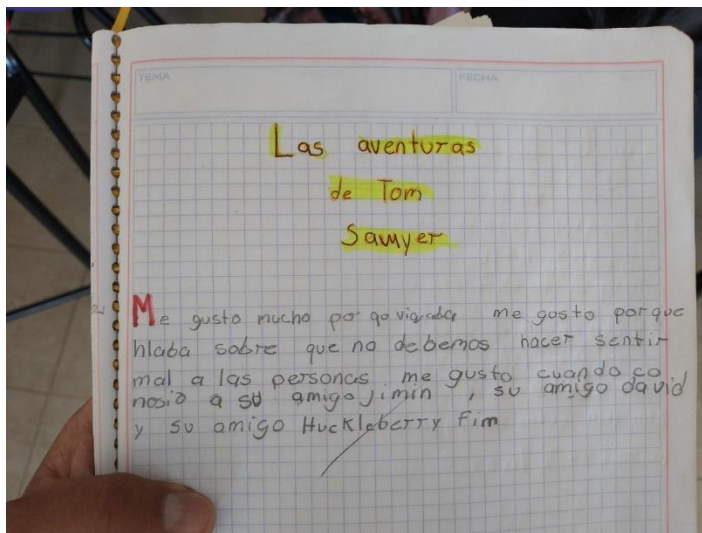 TEMA
FECHA
Las aventuras
de Tom
Sawyer
Me gusto mucho por me gusto porque
hlaba sobre que no debemos hacer sentir
mal a las personas me gusto cuando co
nosio a su amigo jimin , su amigo david
y su amigo Huckleberry Fim